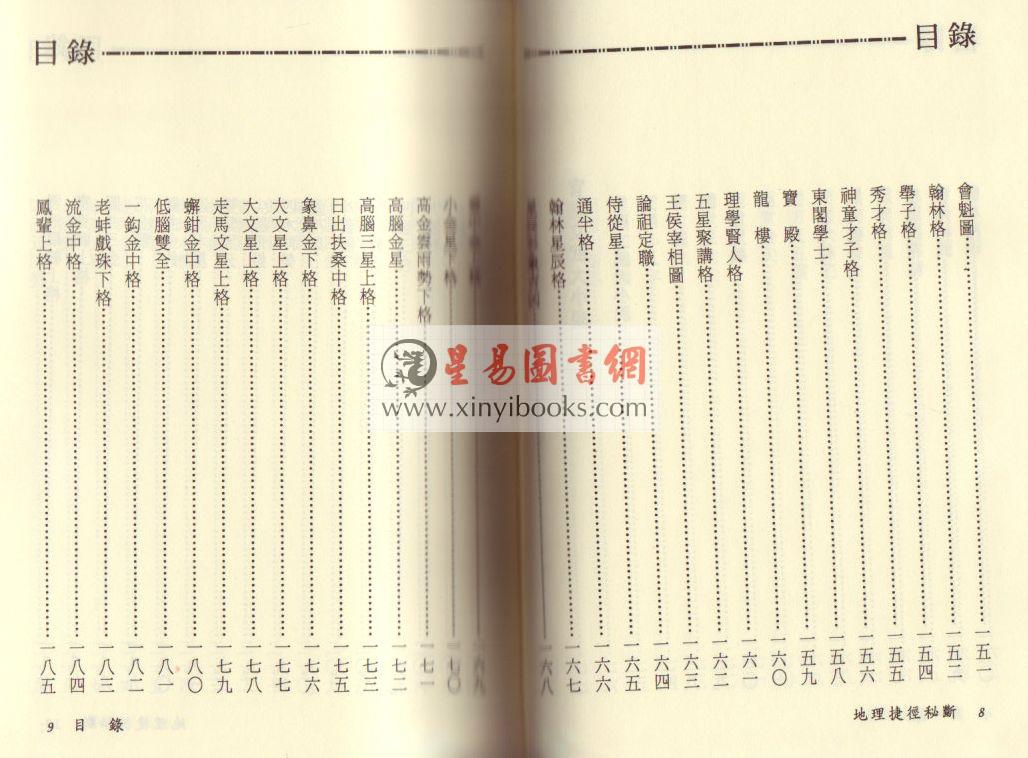 目錄
會魁圖……一五一
翰林格……一五二
舉子格……一五四
秀才格……一五五
神童才子格……一五七
東閣學士……一五八
寶殿……一五九
龍樓……一六〇
理學賢人格……一六一
五星聚講格……一六二
王侯宰相圖……一六三
論祖定職……一六四
侍從星……一六五
通半格……一六六
翰林星辰格……一六七
一六八
地理捷徑秘斷 8
目錄
小金星下格……一七〇
高金雲雨勢下格……一七一
高腦金星……一七二
高腦三星上格……一七三
日出扶桑中格……一七五
象鼻金下格……一七六
大文星上格……一七七
大文星上格……一七八
走馬文星上格……一七九
蟹鉗金中格……一八〇
低腦雙全……一八一
一鈎金中格……一八二
老蚌戲珠下格……一八三
流金中格……一八四
鳳輦上格……一八五
9 目錄
星易圖書網
www.xinyibooks.com